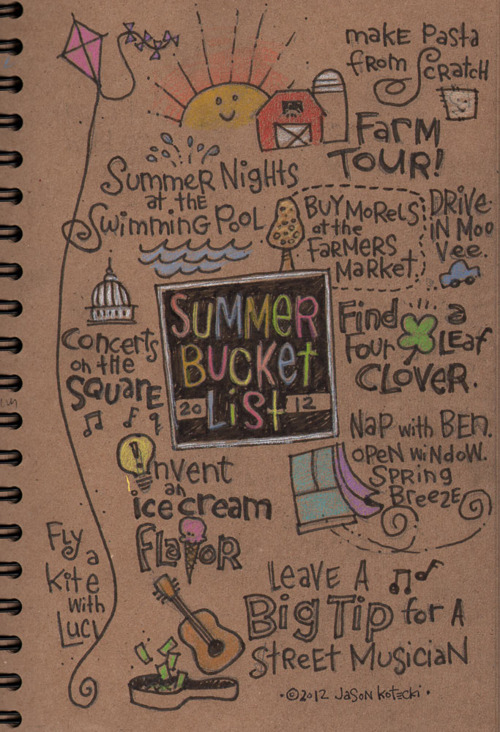 MAKE PASTA
FROM SCRATCH
FARM
TOUR!
SUMMER NIGHTS
at the
SWIMMING POOL
BUY MORELS
at the
FARMERS
MARKET
DRIVE
IN MOO
Vee.
Concerts
on the
SQUARE
SUMMER
BUCKET
LiSt
20 12
Find
a
Four LEAF
CLOVER.
NAP with BEN.
OPEN WINDOW.
SPRING
BREEZE
Invent
an
ice cream
FLAVOR
Fly
a
Kite
with
Lucy
LEAVE A
Big Tip for A
StReEt MUSiCiAN
©2012 JASON KOTECKi